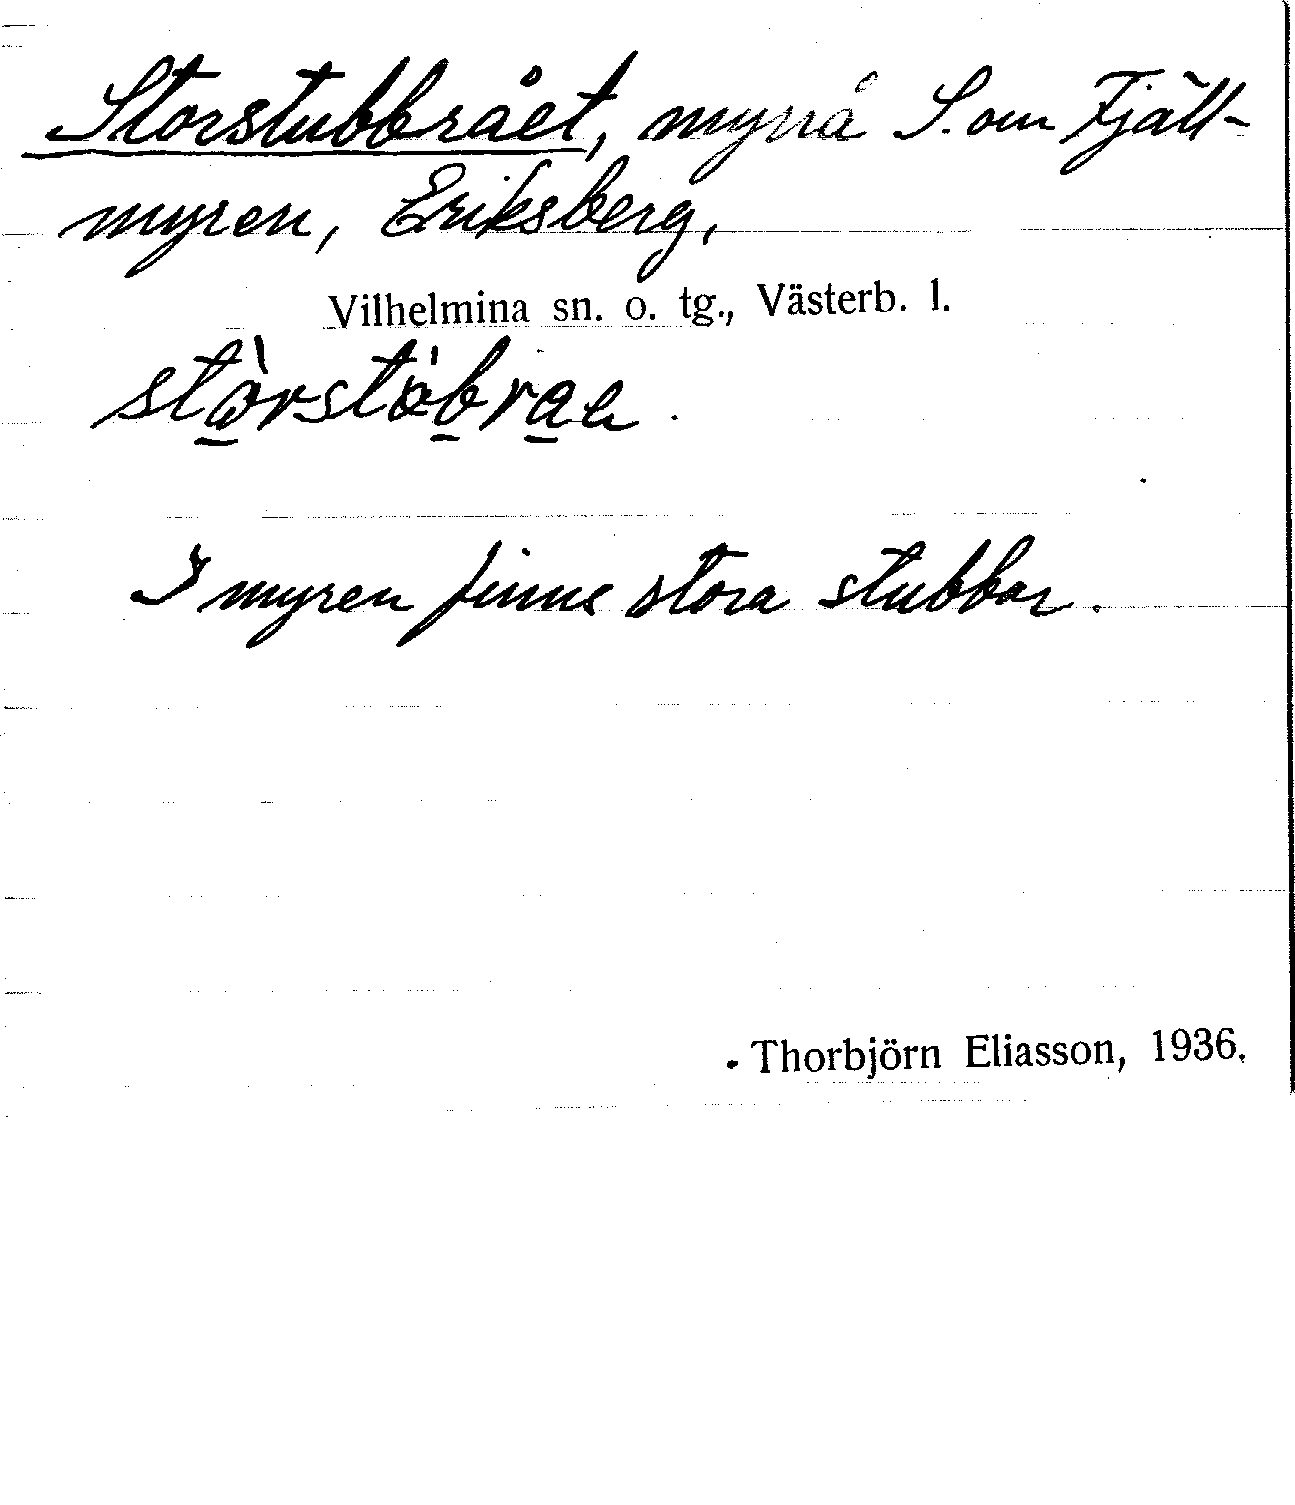 Storstubbrået, myrrå S. om Fjäll-
myren, Eriksberg,
Vilhelmina sn. o. tg., Västerb. l.
I myren finns stora stubbar.
Thorbjörn Eliasson, 1936.